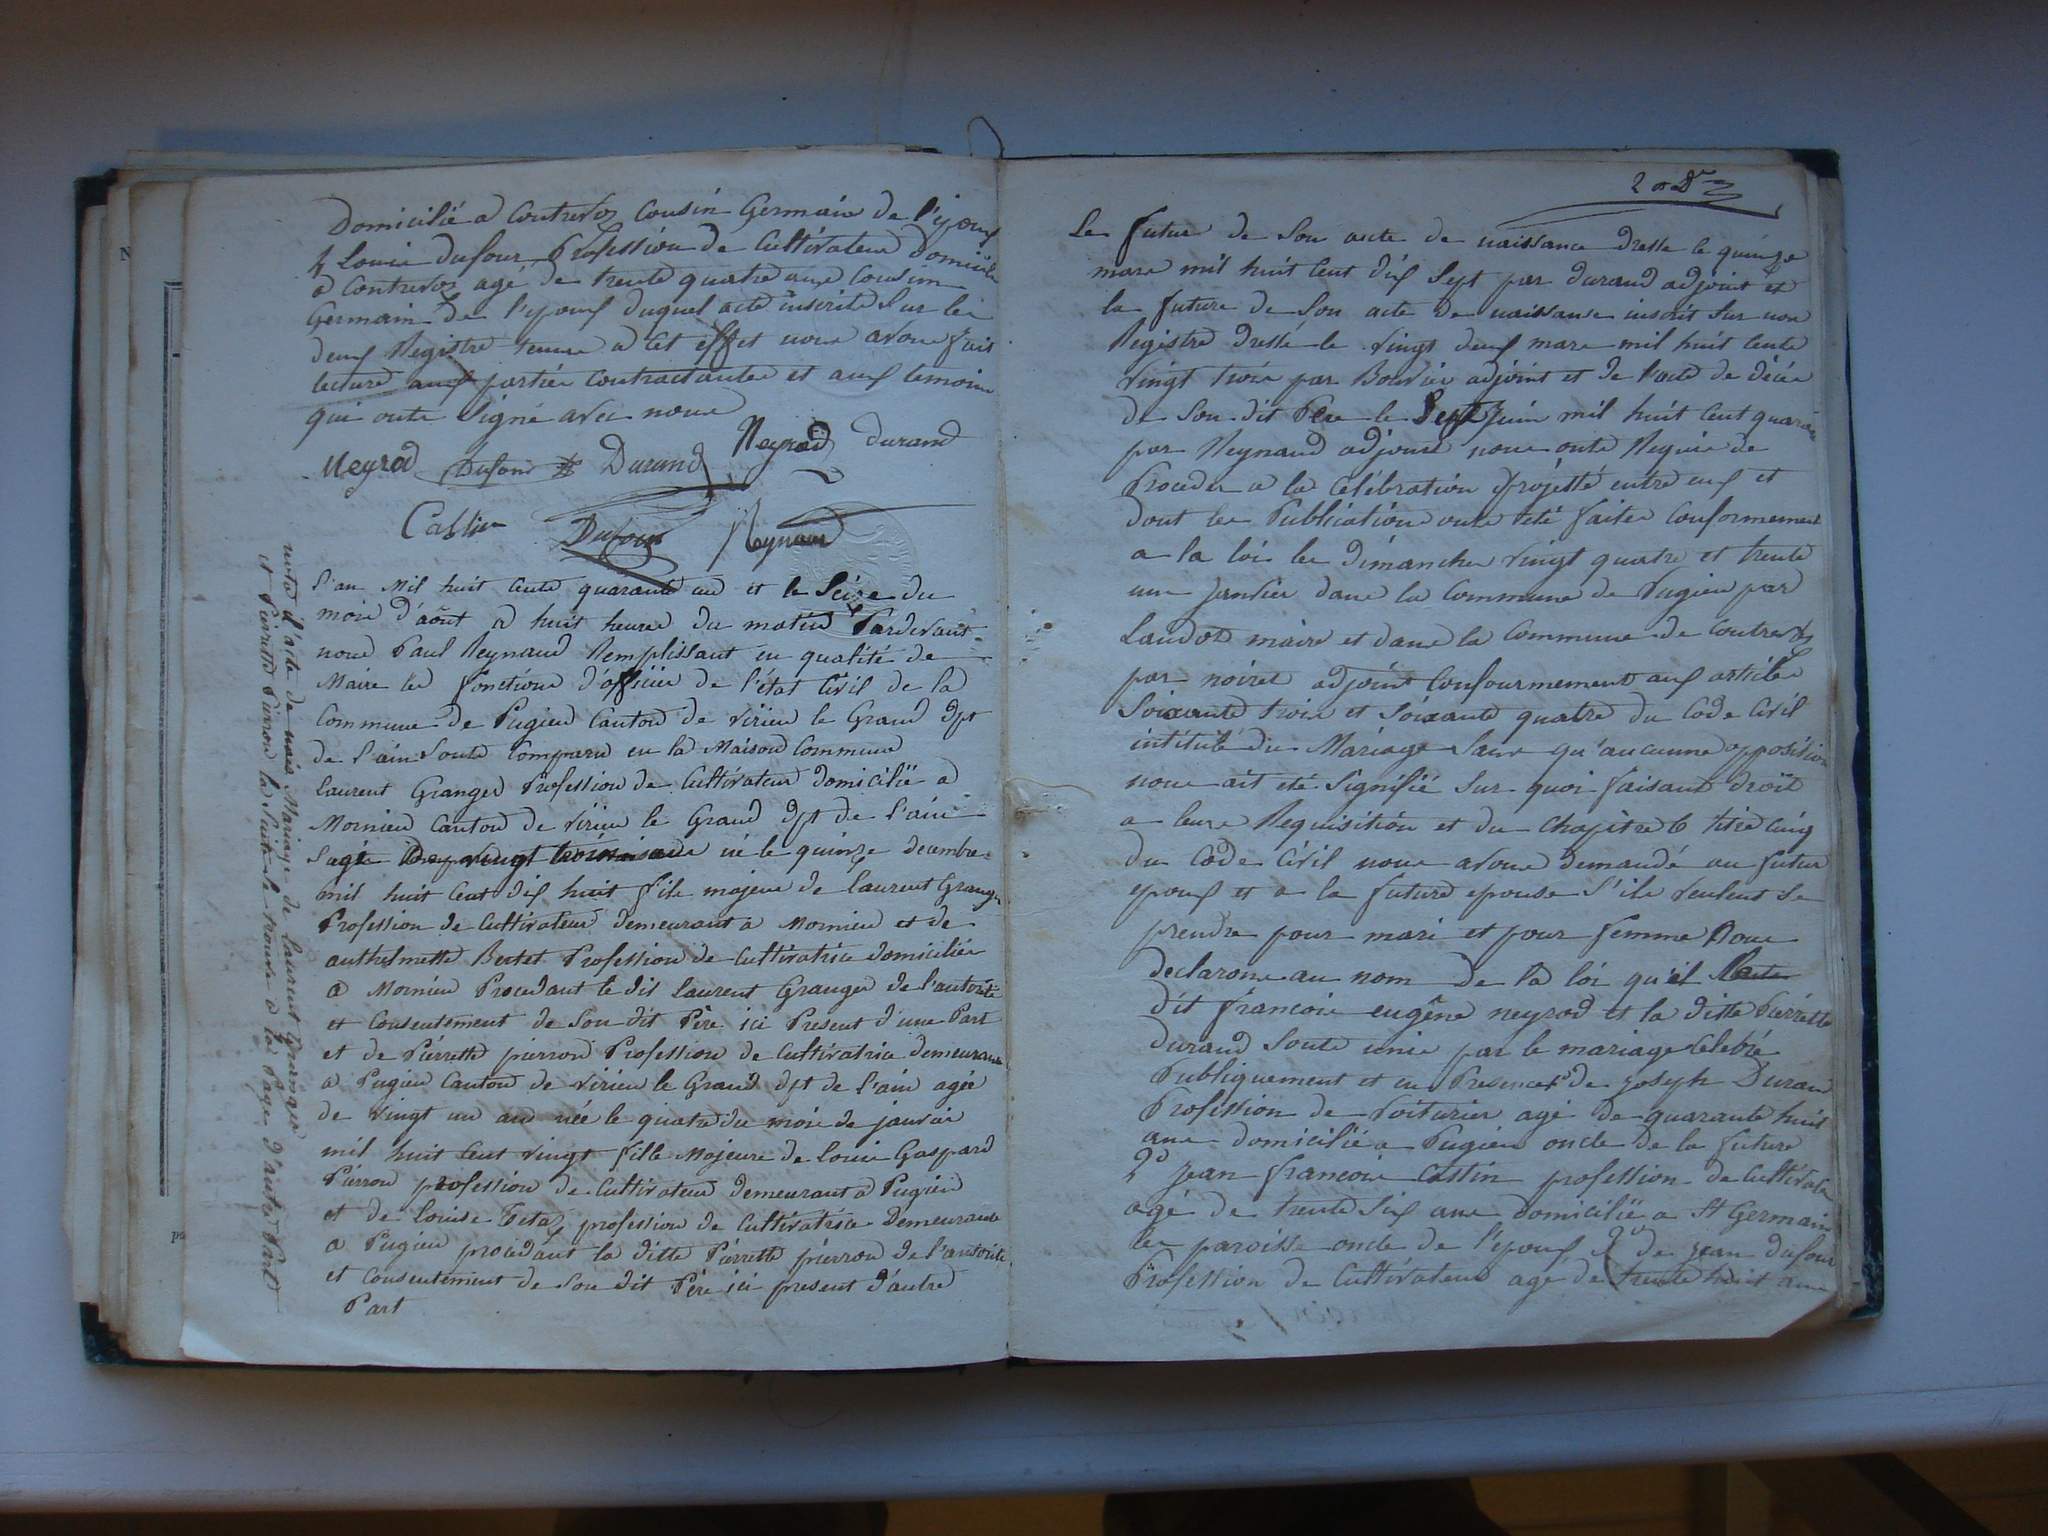 Domicilié a Contrevoz Cousin Germain de l'epoux
4 Louis Dufour Profession de Cultivateur Domicilié
a Contrevoz agé de trente quatre ans Cousin
Germain de l'epoux duquel acte inscrite Sur les
deux Registre tenue a cet effet nous avons fait
lecture aux partiés contractantes et aux temoins
qui onte Signé avec nous
Neyrod Dufour Durand Neyrod Durand
Castin Dufour Reynaud
L'an Mil huit Cente quarante un et le Seize du
mois d'août a huit heures du matin Pardevant
nous Paul Reynaud Remplissant en qualité de
Maire les fonctions d'officier de l'état Civil de la
Commune de Pugieu Canton de Virieu le Grand dpt
de l'ain Sonte Comparu en la Maison Commune
laurent Granger Profession de Cultivateur domicilié a
Mornieu Canton de Virieu le Grand dpt de l'ain
né le quinze decembre
mil huit Cent dix huit fils majeur de laurent Granger
Profession de Cultivateur demeurant a Mornieu et de
anthelmette Bertet Profession de Cultivatrice domiciliée
a Mornieu Procedant le dit laurent Granger de l'autorité
et Consentement de Son dit Père ici Present d'une Part
et de Pierrette pierron Profession de Cultivatrice demeurante
a Pugieu Canton de Virieu le Grand dpt de l'ain agée
de vingt un ans née le quatre du mois de janvier
mil huit Cent vingt fille Majeure de Louis Gaspard
Pierron profession de Cultivateur demeurant a Pugieu
et de Louise profession de Cultivatrice Demeurante
a Pugieu procedant la ditte Pierrette pierron de l'autorité
et Consentement de Son dit Père ici present d'autre
Part
nota l'acte de Mariage de Laurent Granger
et Pierrette Pierron la Suite Se trouve a la Page d'autre Part
Le futur de Son acte de naissance dressé le quinze
mars mil huit Cent dix Sept par durand adjoint et
la future de Son acte de naissance inscrit Sur non
Registre dressé le vingt deux mars mil huit Cente
vingt trois par Bouvier adjoint et de l'acte de décès
de Son dit Père le Sept Juin mil huit Cent quarante
par Reynaud adjoint nous onte Requis de
Proceder a la Célébration projetté entre eux et
dont les Publication onte été faites Conformement
a la loi les dimanches vingt quatre et trente
un janvier dans la Commune de Pugieu par
Laudoz maire et dans la Commune de Contrevoz
par noiret adjoint Confourmement aux articles
Soixante trois et Soixante quatre du Code Civil
intitulé du Mariage Sans qu'aucunne opposition
nous ait été Signifié Sur quoi faisant droit
a leurs Requisition et du Chapitre 6 titre cinq
du Code Civil nous avons demandé au futur
epoux et a la future epouse S'ils veulent Se
prendre pour mari et pour femme Nous
declarons au nom de la loi qu'il
dit francois eugêne neyrod et la ditte Pierrette
Durand Sonte unis par le mariage Célébré
Publiquement et en Presences de joseph Durand
Profession de voiturier agé de quarante huit
ans domicilié a Pugieu oncle de la future
2º Jean francois Castin profession de Cultivateur
agé de trente Six ans domicilié a St Germain
les paroisse oncle de l'epoux 3º de jean dufour
Profession de Cultivateur agé de trente huit ans